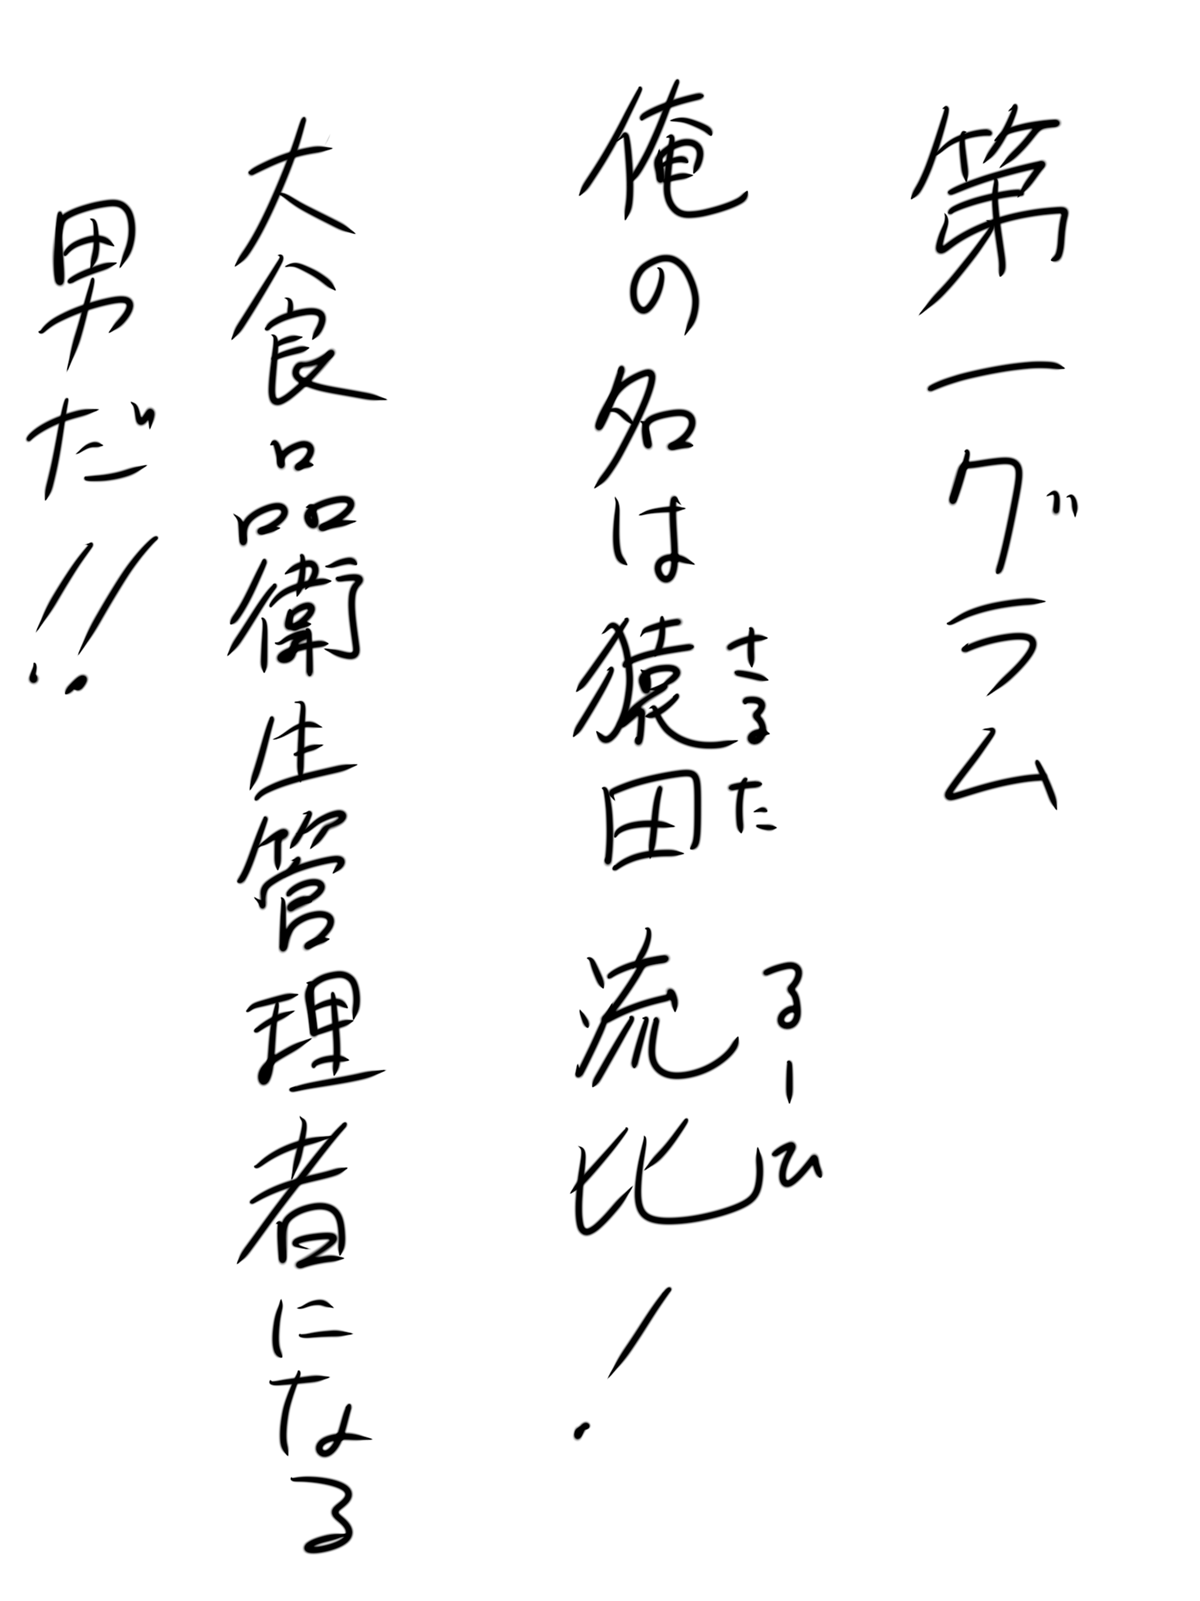 第一グラム
俺の名は猿田流比！
さるた るーひ
大食品衛生管理者になる
男だ！！